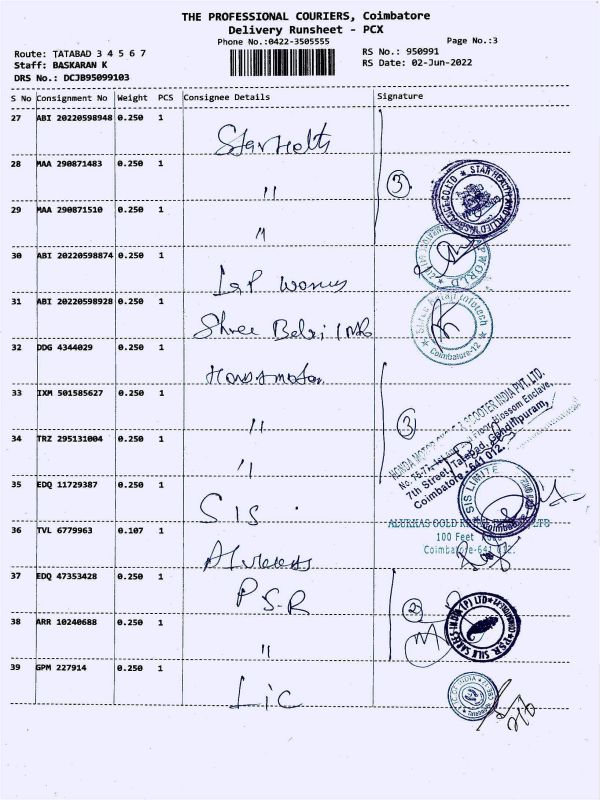 THE PROFESSIONAL COURIERS, Coimbatore
Delivery Runsheet - PCX
Phone No.:0422-3505555
Page No.:3
Route: TATABAD 3 4 5 6 7
RS No.: 950991
Staff: BASKARAN K
RS Date: 02-Jun-2022
DRS No.: DCJB95099103
S No Consignment No Weight PCS Consignee Details Signature
27 ABI 20220598948 0.250 1
Starhelth
28 MAA 290871483 0.250 1
"
3
STAR HEALTH AND ALLIED INSURANCE CO LTD
29 MAA 290871510 0.250 1
"
30 ABI 20220598874 0.250 1
WORLD
31 ABI 20220598928 0.250 1
Shree
Infotech
Coimbatore-12
32 DDG 4344029 0.250 1
33 IXM 501585627 0.250 1
"
3
SCOOTER INDIA PVT. LTD.
Blossom Enclave,
7th Street, Tatabad, Gandhipuram,
Coimbatore - 641 012.
34 TRZ 295131004 0.250 1
"
35 EDQ 11729387 0.250 1
SIS
SIS LIMITE
Coimbatore
36 TVL 6779963 0.107 1
ALUKKAS GOLD
LTD
100 Feet
Coimbatore-641 012.
37 EDQ 47353428 0.250 1
P S-R
2
P.S.R. SILK SAREES INDIA (P) LTD
38 ARR 10240688 0.250 1
"
39 GPM 227914 0.250 1
Lic
OF INDIA